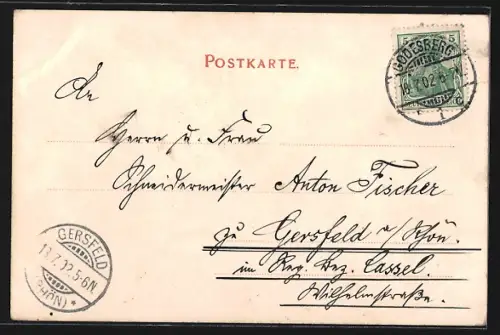 POSTKARTE.
5 5
GODESBERG
02
1
An
Herrn u. Frau
Schneidermeister Anton Fischer
zu Gersfeld a/Rhön.
im Reg. Bez. Cassel.
Wilhelmstraße.
GERSFELD
13.7.02.5-6N.
(RHÖN) *